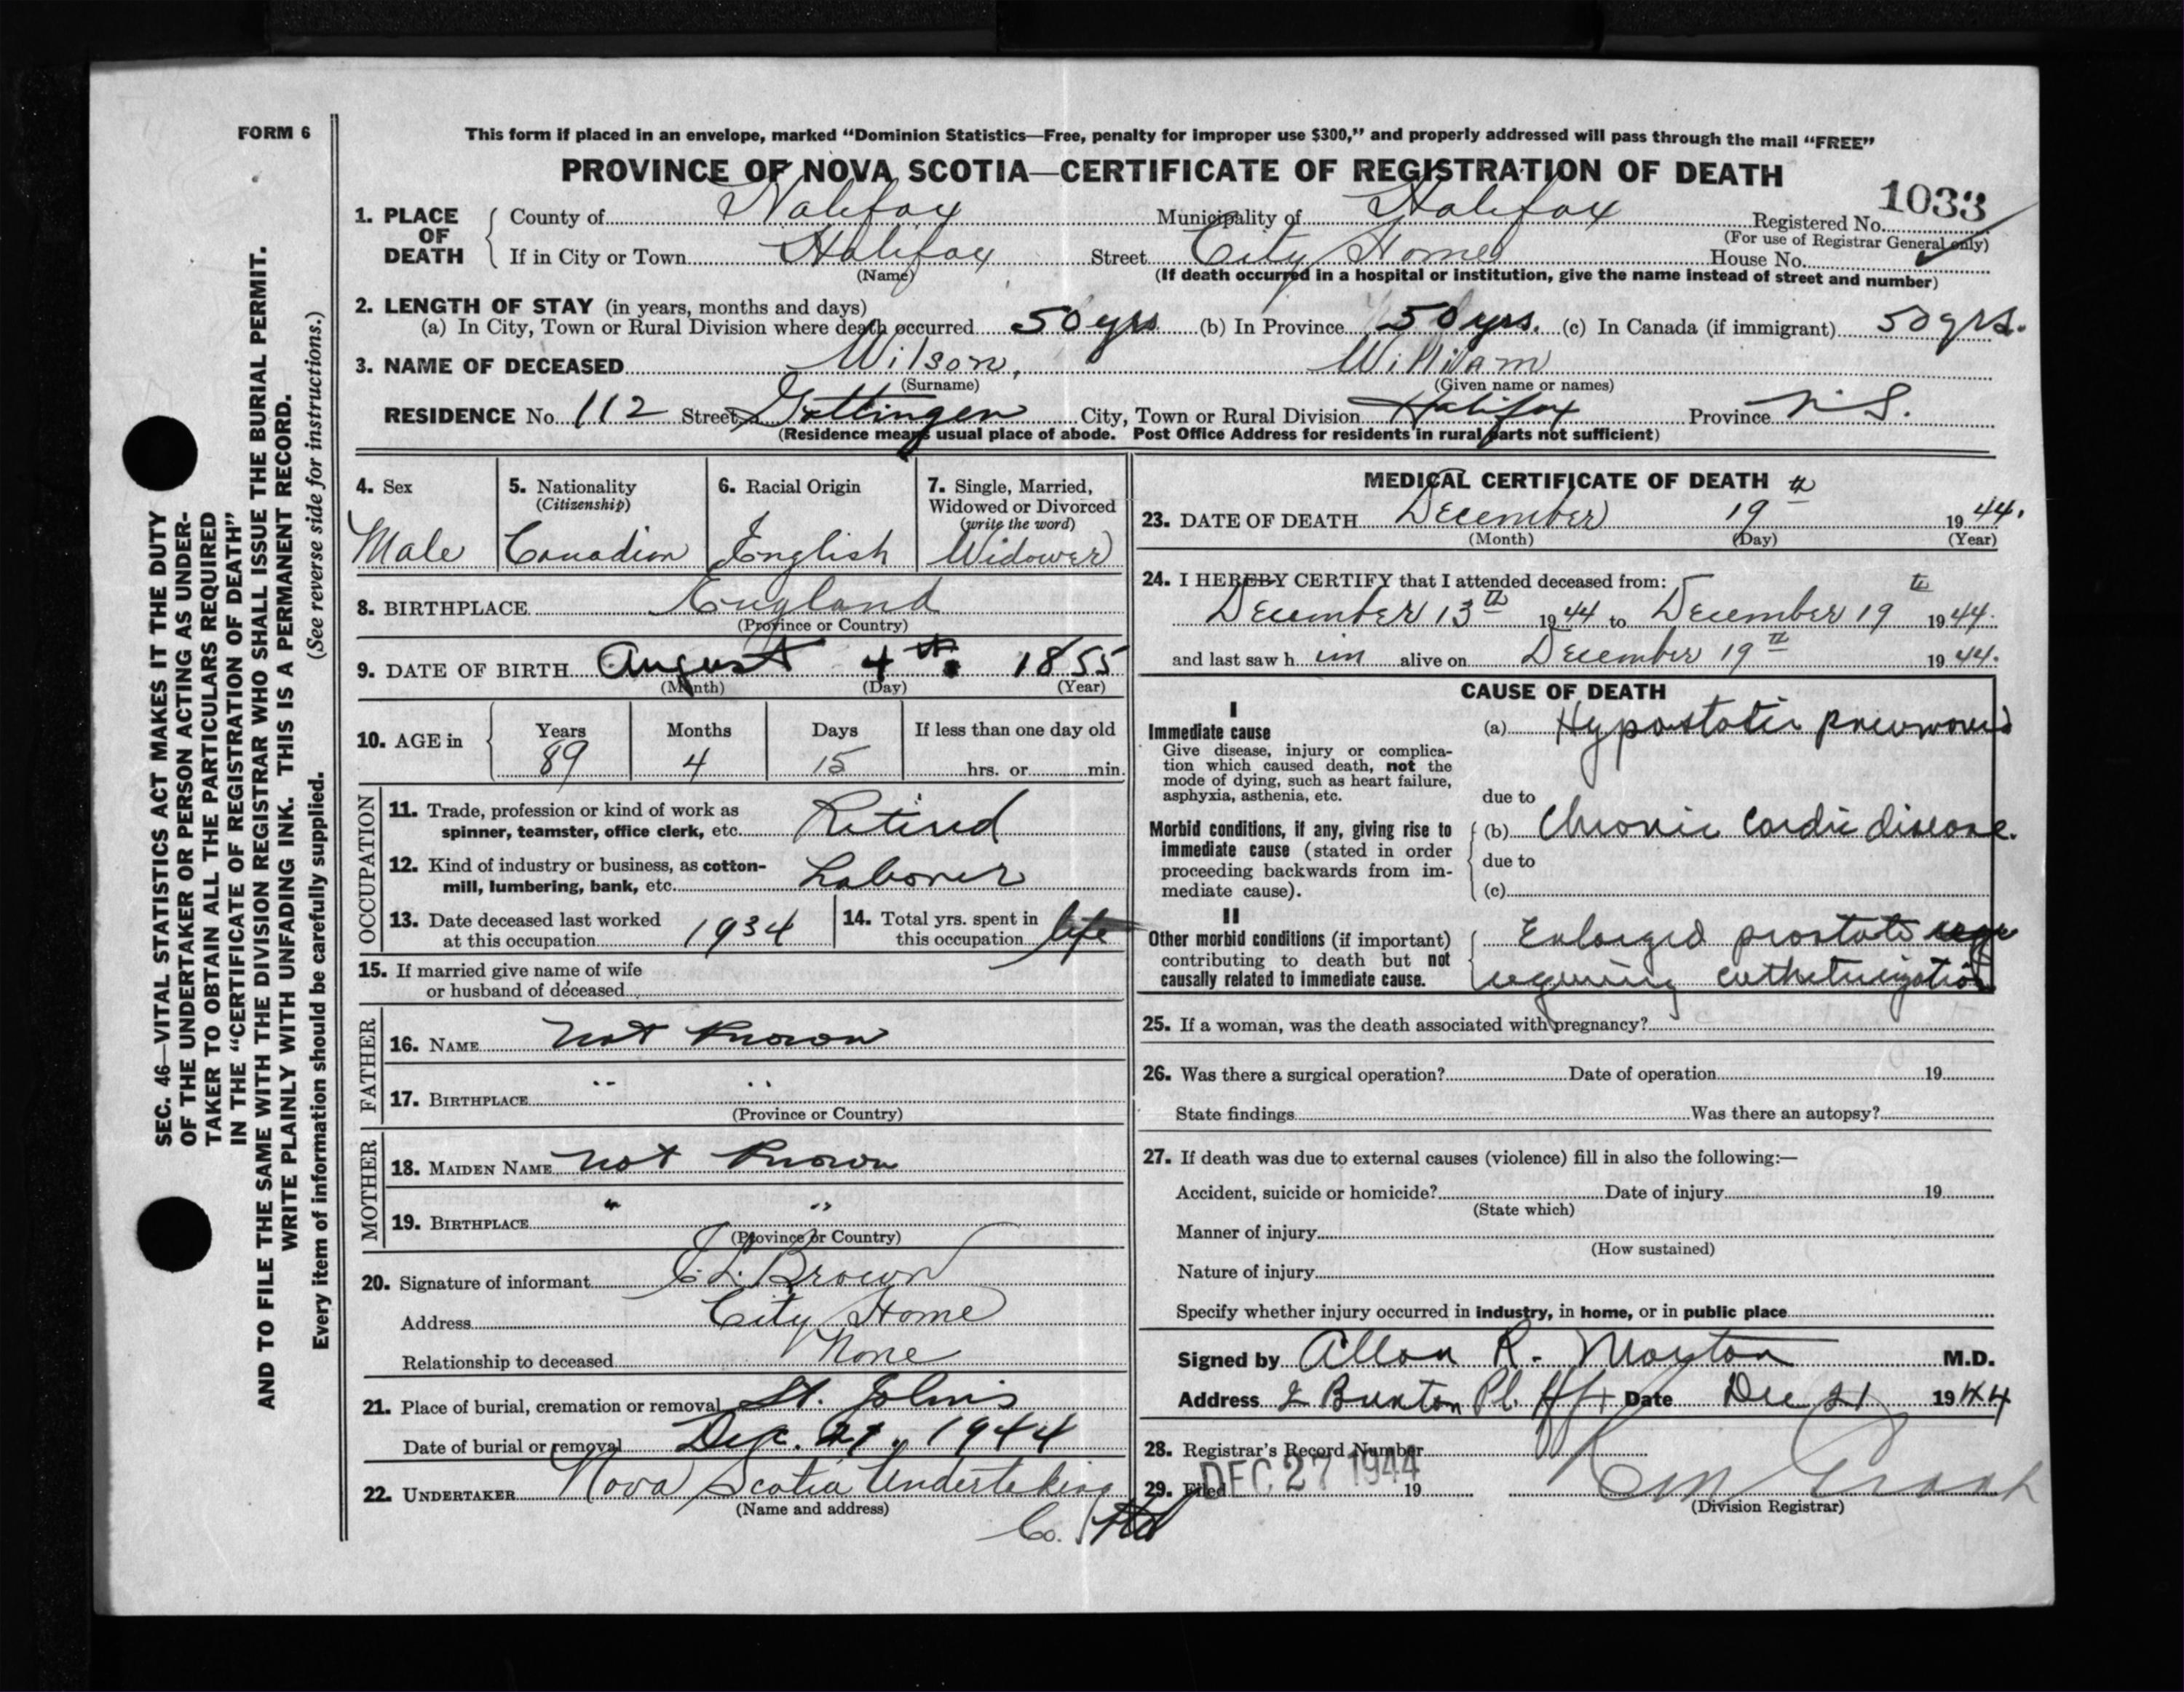 FORM 6
This form if placed in an envelope, marked “Dominion Statistics—Free, penalty for improper use $300,” and properly addressed will pass through the mail “FREE”
PROVINCE OF NOVA SCOTIA—CERTIFICATE OF REGISTRATION OF DEATH
1033
1. PLACE OF DEATH County of Halifax Municipality of Halifax Registered No.
(For use of Registrar General only)
If in City or Town Halifax Street City Home House No.
(Name) (If death occurred in a hospital or institution, give the name instead of street and number)
2. LENGTH OF STAY (in years, months and days)
(a) In City, Town or Rural Division where death occurred 50 yrs (b) In Province 50 yrs. (c) In Canada (if immigrant) 50 yrs.
3. NAME OF DECEASED Wilson, William
(Surname) (Given name or names)
RESIDENCE No. 112 Street Gottingen City, Town or Rural Division Halifax Province N.S.
(Residence means usual place of abode. Post Office Address for residents in rural parts not sufficient)
4. Sex
Male
5. Nationality
(Citizenship)
Canadian
6. Racial Origin
English
7. Single, Married,
Widowed or Divorced
(write the word)
Widower
8. BIRTHPLACE England
(Province or Country)
9. DATE OF BIRTH August 4th. 1855
(Month) (Day) (Year)
10. AGE in Years Months Days If less than one day old
89 4 15 hrs. or min.
OCCUPATION
11. Trade, profession or kind of work as
spinner, teamster, office clerk, etc. Retired
12. Kind of industry or business, as cotton-
mill, lumbering, bank, etc. Laborer
13. Date deceased last worked
at this occupation 1934
14. Total yrs. spent in
this occupation life
15. If married give name of wife
or husband of deceased
FATHER
16. NAME not known
17. BIRTHPLACE " "
(Province or Country)
MOTHER
18. MAIDEN NAME not known
19. BIRTHPLACE " "
(Province or Country)
20. Signature of informant Brown
Address City Home
Relationship to deceased None
21. Place of burial, cremation or removal St. John's
Date of burial or removal Dec. 21, 1944
22. UNDERTAKER Nova Scotia Undertaking
(Name and address)
Co. Ltd
MEDICAL CERTIFICATE OF DEATH
23. DATE OF DEATH December 19th 1944.
(Month) (Day) (Year)
24. I HEREBY CERTIFY that I attended deceased from:
December 13th 1944 to December 19th 1944.
and last saw him alive on December 19th 1944.
CAUSE OF DEATH
I
Immediate cause
Give disease, injury or complica-
tion which caused death, not the
mode of dying, such as heart failure,
asphyxia, asthenia, etc.
(a) Hypostatic pneumonia
due to
Morbid conditions, if any, giving rise to
immediate cause (stated in order
proceeding backwards from im-
mediate cause).
(b) Chronic cardic disease.
due to
(c)
II
Other morbid conditions (if important)
contributing to death but not
causally related to immediate cause.
Enlarged prostate
requiring catheterization
25. If a woman, was the death associated with pregnancy?
26. Was there a surgical operation? Date of operation 19
State findings Was there an autopsy?
27. If death was due to external causes (violence) fill in also the following:—
Accident, suicide or homicide? Date of injury 19
(State which)
Manner of injury
(How sustained)
Nature of injury
Specify whether injury occurred in industry, in home, or in public place
Signed by Allan R. Morton M.D.
Address 2 Buxton Pl. Hfx Date Dec 21 1944
28. Registrar's Record Number
29. Filed DEC 27 1944 19
(Division Registrar)
SEC. 46—VITAL STATISTICS ACT MAKES IT THE DUTY
OF THE UNDERTAKER OR PERSON ACTING AS UNDER-
TAKER TO OBTAIN ALL THE PARTICULARS REQUIRED
IN THE “CERTIFICATE OF REGISTRATION OF DEATH”
AND TO FILE THE SAME WITH THE DIVISION REGISTRAR WHO SHALL ISSUE THE BURIAL PERMIT.
WRITE PLAINLY WITH UNFADING INK. THIS IS A PERMANENT RECORD.
Every item of information should be carefully supplied. (See reverse side for instructions.)